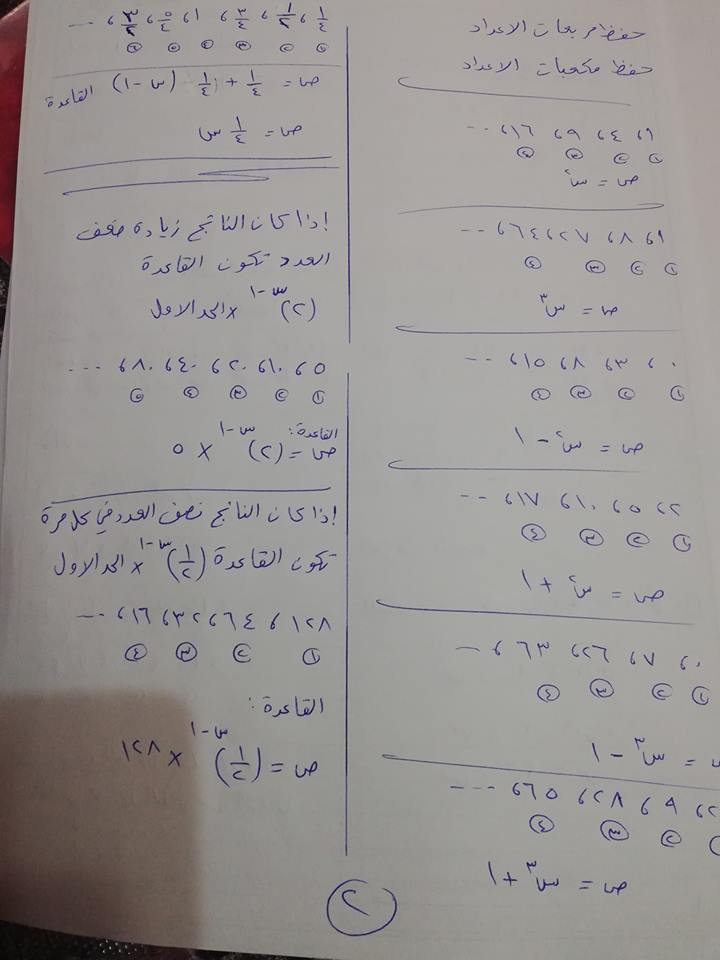 حفظ مربعات الاعداد
حفظ مكعبات الاعداد
١ ، ٤ ، ٩ ، ١٦ ، ...
① ② ③ ④
ص = س²
١ ، ٨ ، ٢٧ ، ٦٤ ، ...
① ② ③ ④
ص = س³
٠ ، ٣ ، ٨ ، ١٥ ، ...
① ② ③ ④
ص = س² - ١
٢ ، ٥ ، ١٠ ، ١٧ ، ...
① ② ③ ④
ص = س² + ١
٠ ، ٧ ، ٢٦ ، ٦٣ ، ...
① ② ③ ④
= س³ - ١
٢ ، ٩ ، ٢٨ ، ٦٥ ، ...
② ③ ④
ص = س³ + ١
١/٤ ، ١/٢ ، ٣/٤ ، ١ ، ٥/٤ ، ٣/٢ ، ...
① ② ③ ④ ⑤ ⑥
ص = ١/٤ + ١/٤ (س - ١) القاعدة
ص = ١/٤ س
إذا كان الناتج زيادة ضعف
العدد تكون القاعدة
(٢)^(س-١) × الحد الاول
٥ ، ١٠ ، ٢٠ ، ٤٠ ، ٨٠ ، ...
① ② ③ ④ ⑤
القاعدة:
ص = (٢)^(س-١) × ٥
إذا كان الناتج نصف العدد في كل مرة
تكون القاعدة (١/٢)^(س-١) × الحد الاول
١٢٨ ، ٦٤ ، ٣٢ ، ١٦ ، ...
① ② ③ ④
القاعدة :
ص = (١/٢)^(س-١) × ١٢٨
٢